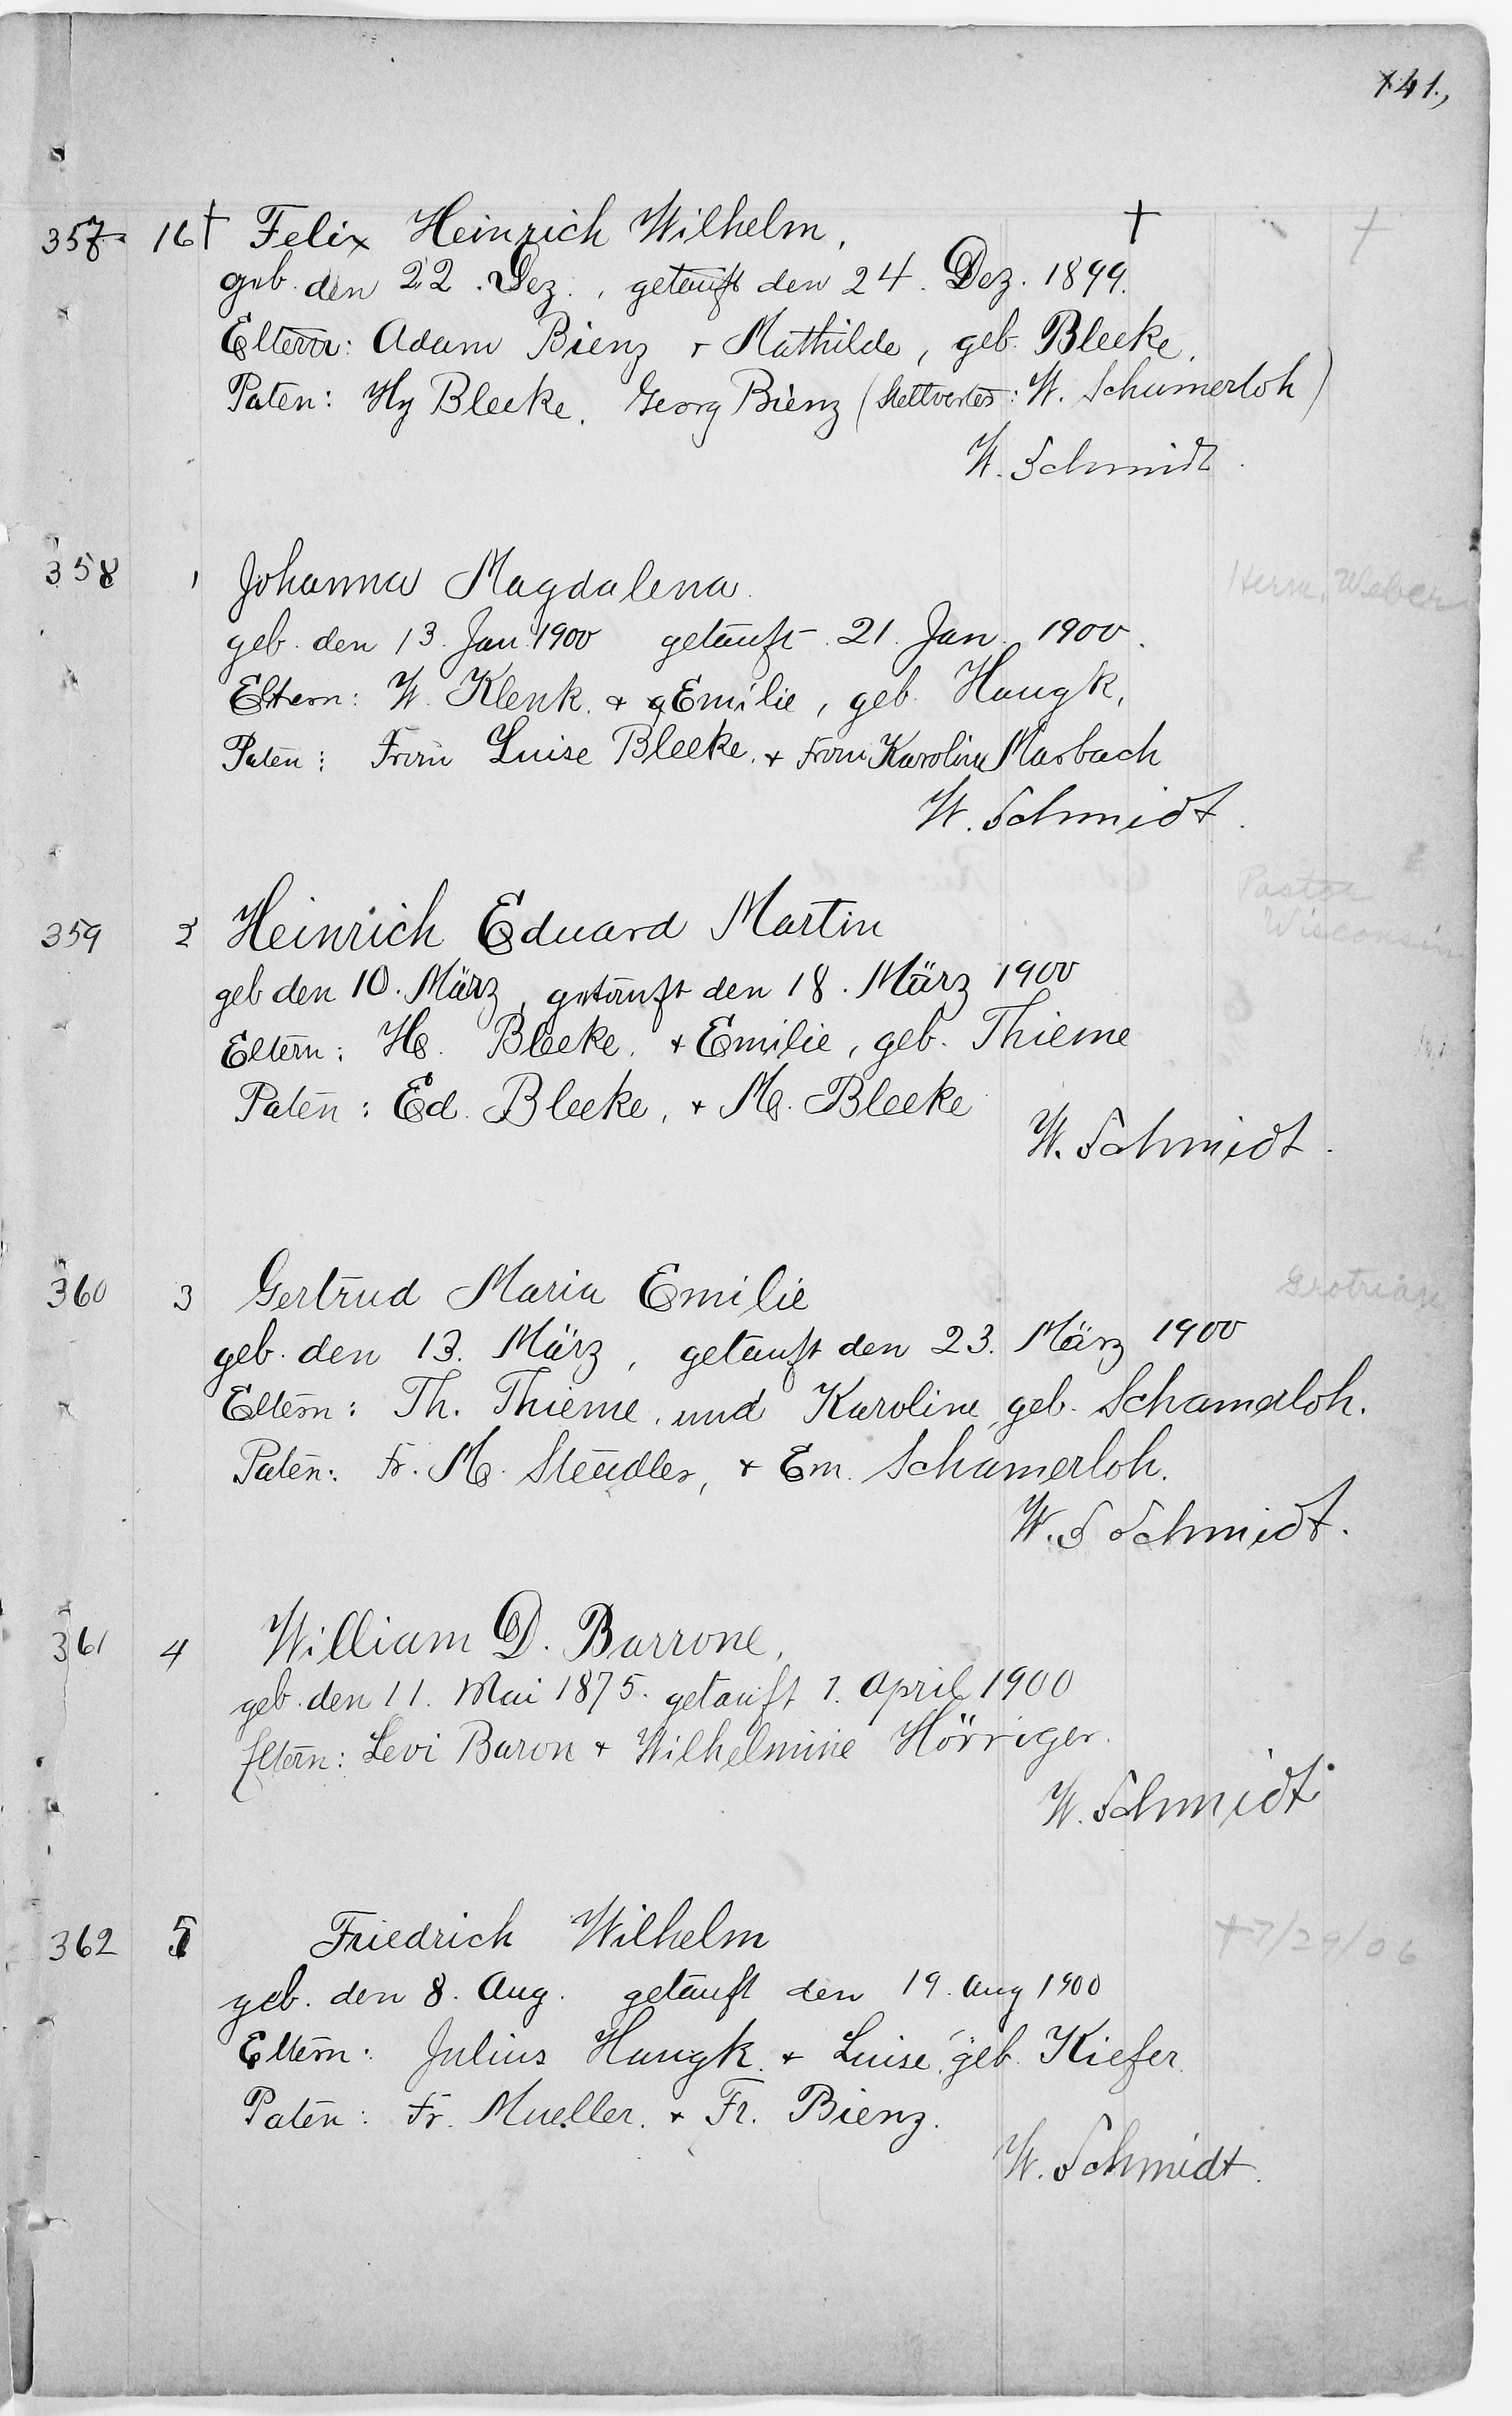 141.,
357. 16† Felix Heinrich Wilhelm, † †
geb. den 22. Dez., getauft den 24. Dez. 1899.
Eltern: Adam Bienz + Mathilde, geb. Bleeke.
Paten: Hy Bleeke. Georg Bienz (Stellvertr: W. Schumerloh)
W. Schmidt.
358 1 Johanna Magdalena. Herm. Weber
geb. den 13. Jan. 1900 getauft 21. Jan. 1900.
Eltern: W. Klenk. + Emilie, geb. Haugk,
Paten: Frau Luise Bleeke. + Frau Karoline Marbach
W. Schmidt.
Pastor
Wisconsin
359 2 Heinrich Eduard Martin
geb den 10. März, getauft den 18. März 1900
Eltern: H. Bleeke. + Emilie, geb. Thieme
Paten: Ed. Bleeke, + M. Bleeke
W. Schmidt.
360 3 Gertrud Maria Emilie Grotrian
geb. den 13. März, getauft den 23. März 1900
Eltern: Th. Thieme. und Karoline, geb. Schamerloh.
Paten: Fr. M. Steudler, + Em. Schumerloh.
W. S Schmidt.
361 4 William D. Barrone,
geb. den 11. Mai 1875. getauft 1. April 1900
Eltern: Levi Baron + Wilhelmine Hörriger.
W. Schmidt
362 5 Friedrich Wilhelm †7/29/06
geb. den 8. Aug. getauft den 19. Aug 1900
Eltern: Julius Haugk. + Luise, geb. Kiefer.
Paten: Fr. Mueller. + Fr. Bienz.
W. Schmidt.